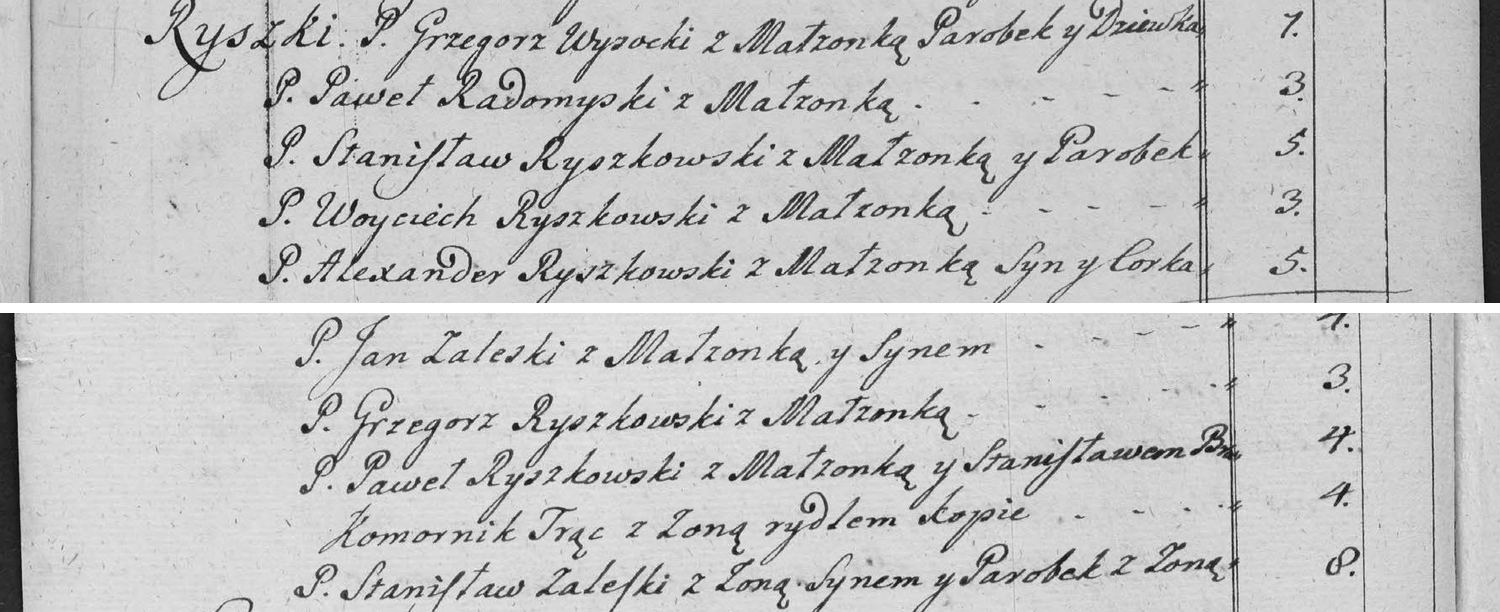 Ryszki. P. Grzegorz Wysocki z Małzonką Parobek y Dziewka " 7.
P. Paweł Radomyski z Małzonką . - - - - " 3.
P. Stanisław Ryszkowski z Małzonką y Parobek " 5.
P. Woyciech Ryszkowski z Małzonką - - - - " 3.
P. Alexander Ryszkowski z Małzonką Syn y Corka " 5.
P. Jan Zaleski z Małzonką y Synem - - - " 4.
P. Grzegorz Ryszkowski z Małzonką - - - - " 3.
P. Paweł Ryszkowski z Małzonką y Stanisławem " 4.
Komornik Trąc z Zoną rydlem kopie - - - " 4.
P. Stanisław Zaleski z Zoną Synem y Parobek z Zoną " 8.